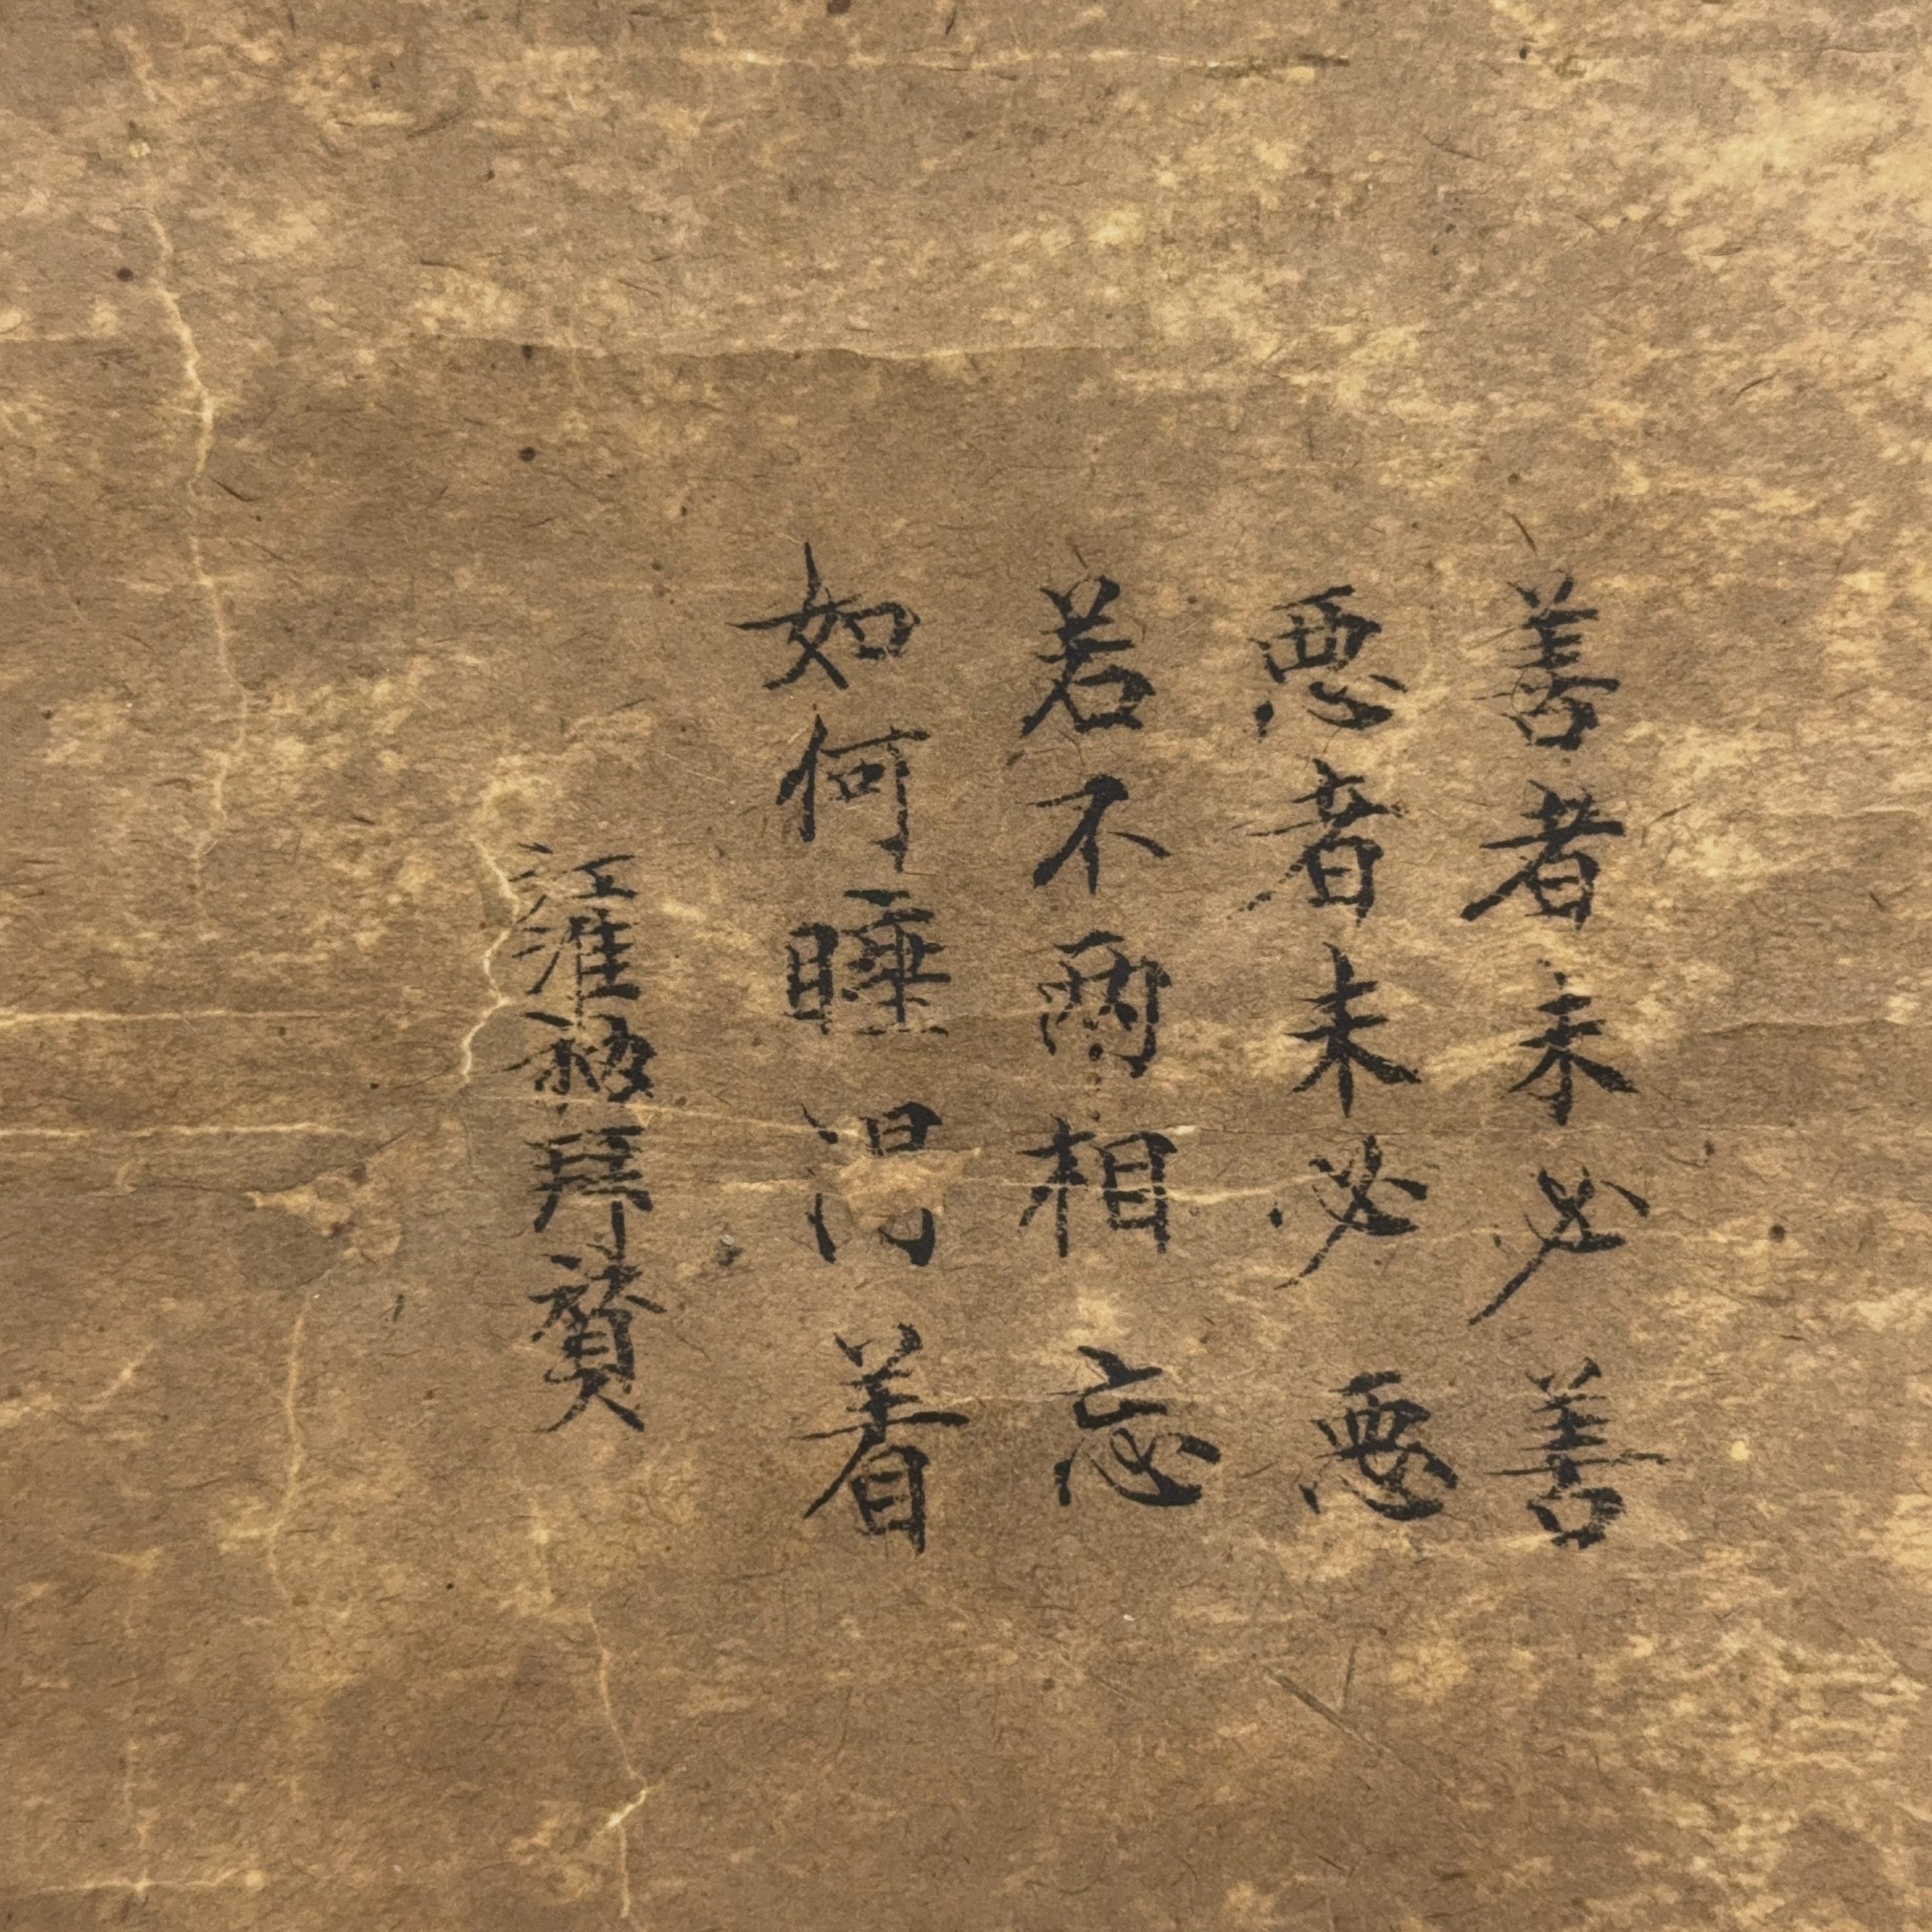 善者未必善
悪者未必悪
若不兩相忘
如何睡得着
江淮拜贊